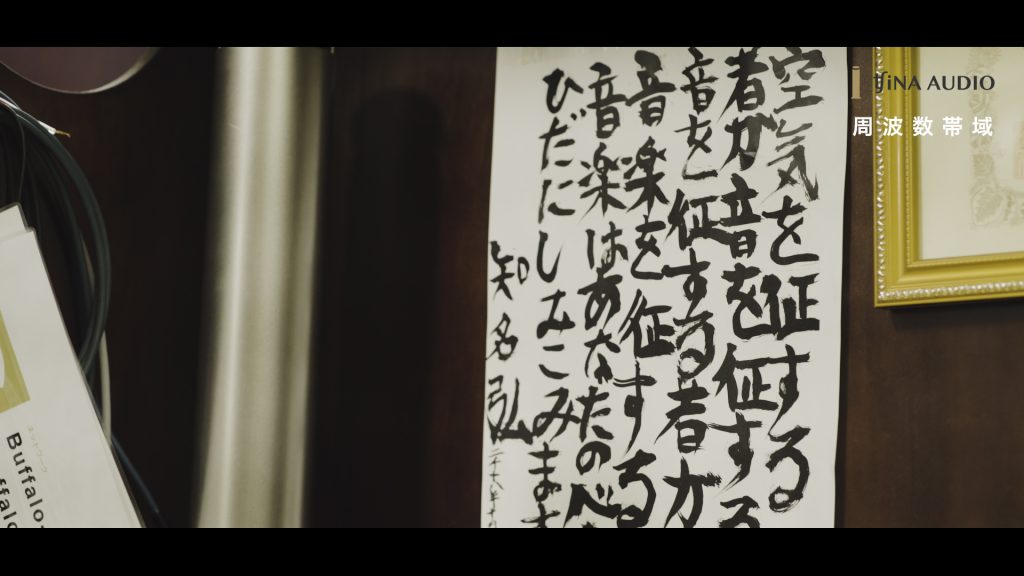 空気を征する
者が音を征する
音を征する者が
音楽を征する
音楽はあなたの
ひだにしみこみます
知名弘
AUDIO
周波数帯域
ネットワーク
Buffalo